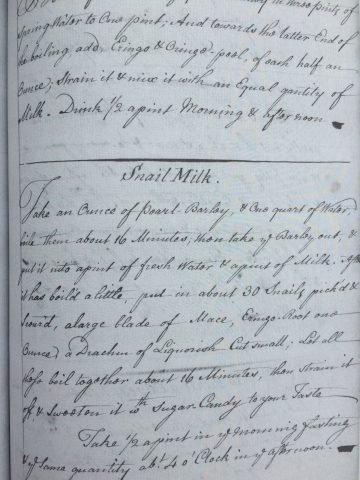 in three pints of
Spring Water to One pint; And towards the latter End of
the boiling add, Eringo & Oringe peel, of each half an
Ounce; Strain it & mix it with an Equal qantity of
Milk. Drink 1/2 a pint Morning & afternoon
Snail Milk.
Take an Ounce of Pearl-Barley, & One quart of Water,
boile them about 16 Minutes, then take ye Barley out, &
put it into a pint of fresh Water & a pint of Milk. After
it has boild a little; put in about 30 Snails pick'd &
Scour'd, a large blade of Mace, Eringo-Root one
Ounce, a Drachm of Liquorish Cut small; Let all
these boil together about 16 Minutes, then Strain it
of, & Sweeten it wth Sugar Candy to your Taste
Take 1/2 a pint in ye Morning fasting
& ye Same quantity abt. 4 o'Clock in ye afternoon.